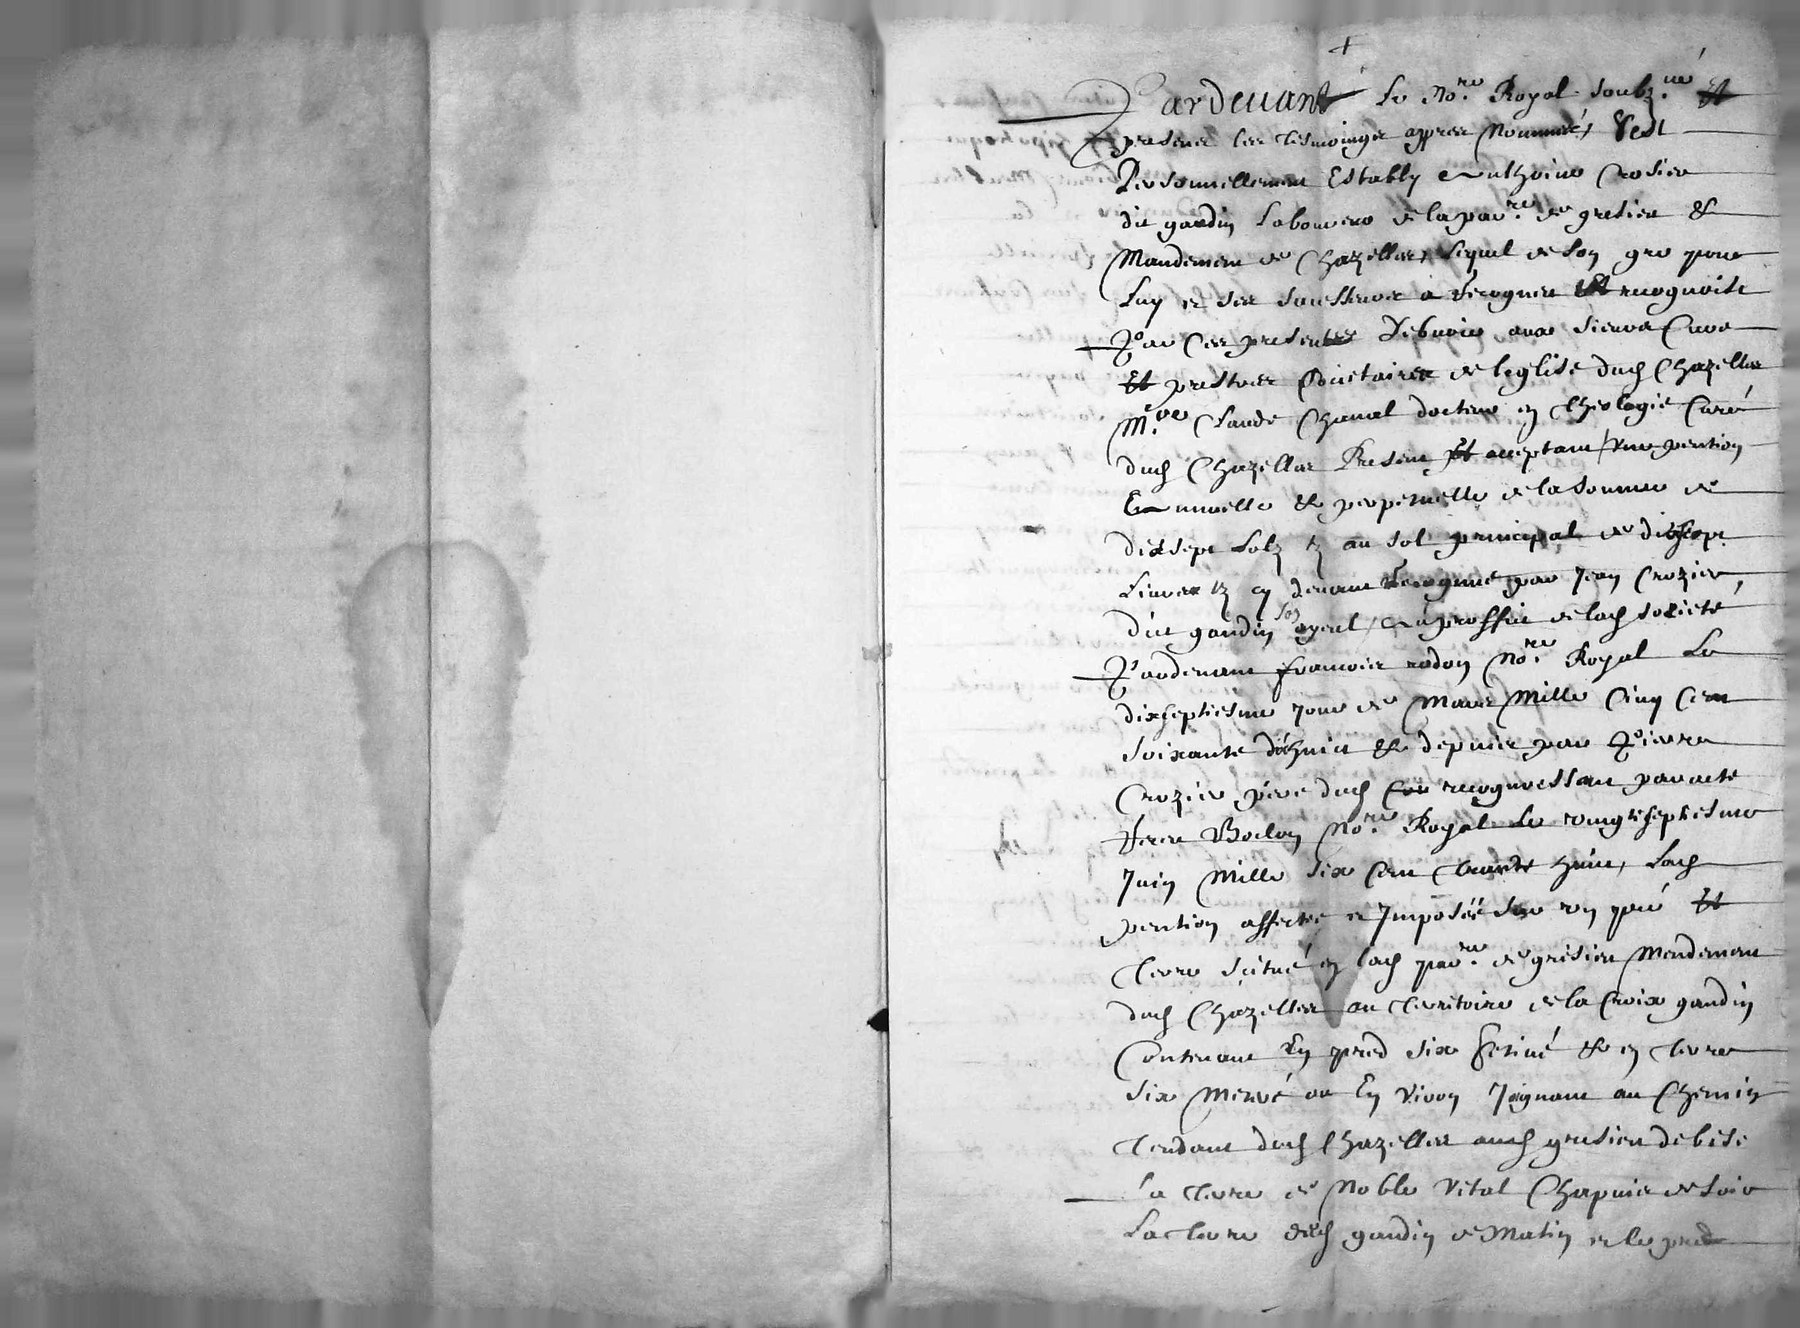 +
Pardevant Le No.re Royal soubz.né Et
presens les tesmoings appres Nommés, s'est
Personnellement Estably Anthoine Crosier
dit gaudin Laboureur de la par.re de gresieu &
Mandement de Chazelles, Lequel de son gre pour
Luy et ses successeurs a recogneu Et recognoist
Par Ces presentes Debvoir aux sieurs Curé
Et prestres Societaires de leglise dud Chazelles
M.re Claude Chanal docteur en theologie Curé
dud Chazelles Present Et acceptant, une pention
Annuelle & perpetuelle de la somme de
dixsept solz tz au sol principal de dixsept
Livres tz cy devant Recogneue par Jean Crozier,
dit gaudin son ayeul, Au proffit de lad societé
Pardevant francois rodon No.re Royal Le
dixseptiesme Jour de Mars Mille Cinq Cent
soixante dixhuit & depuis par Pierre
Crozier pere dud recognoissant par acte
Receu Boilon No.re Royal Le vingtseptiesme
Juin Mille six Cent trante huict, Lad
pention affectée et Imposée sur un pré Et
terre scitué en lad par.re de gresieu Mandement
dud Chazelles au territoire de la Croix gaudin
Contenant En pred six & en terre
six ou En viron Joignant au Chemin
tendant dud Chazelles aud gresieu de bise
La terre de Noble Vital Chapuis de soir
La terre dud gaudin de Matin et le pred